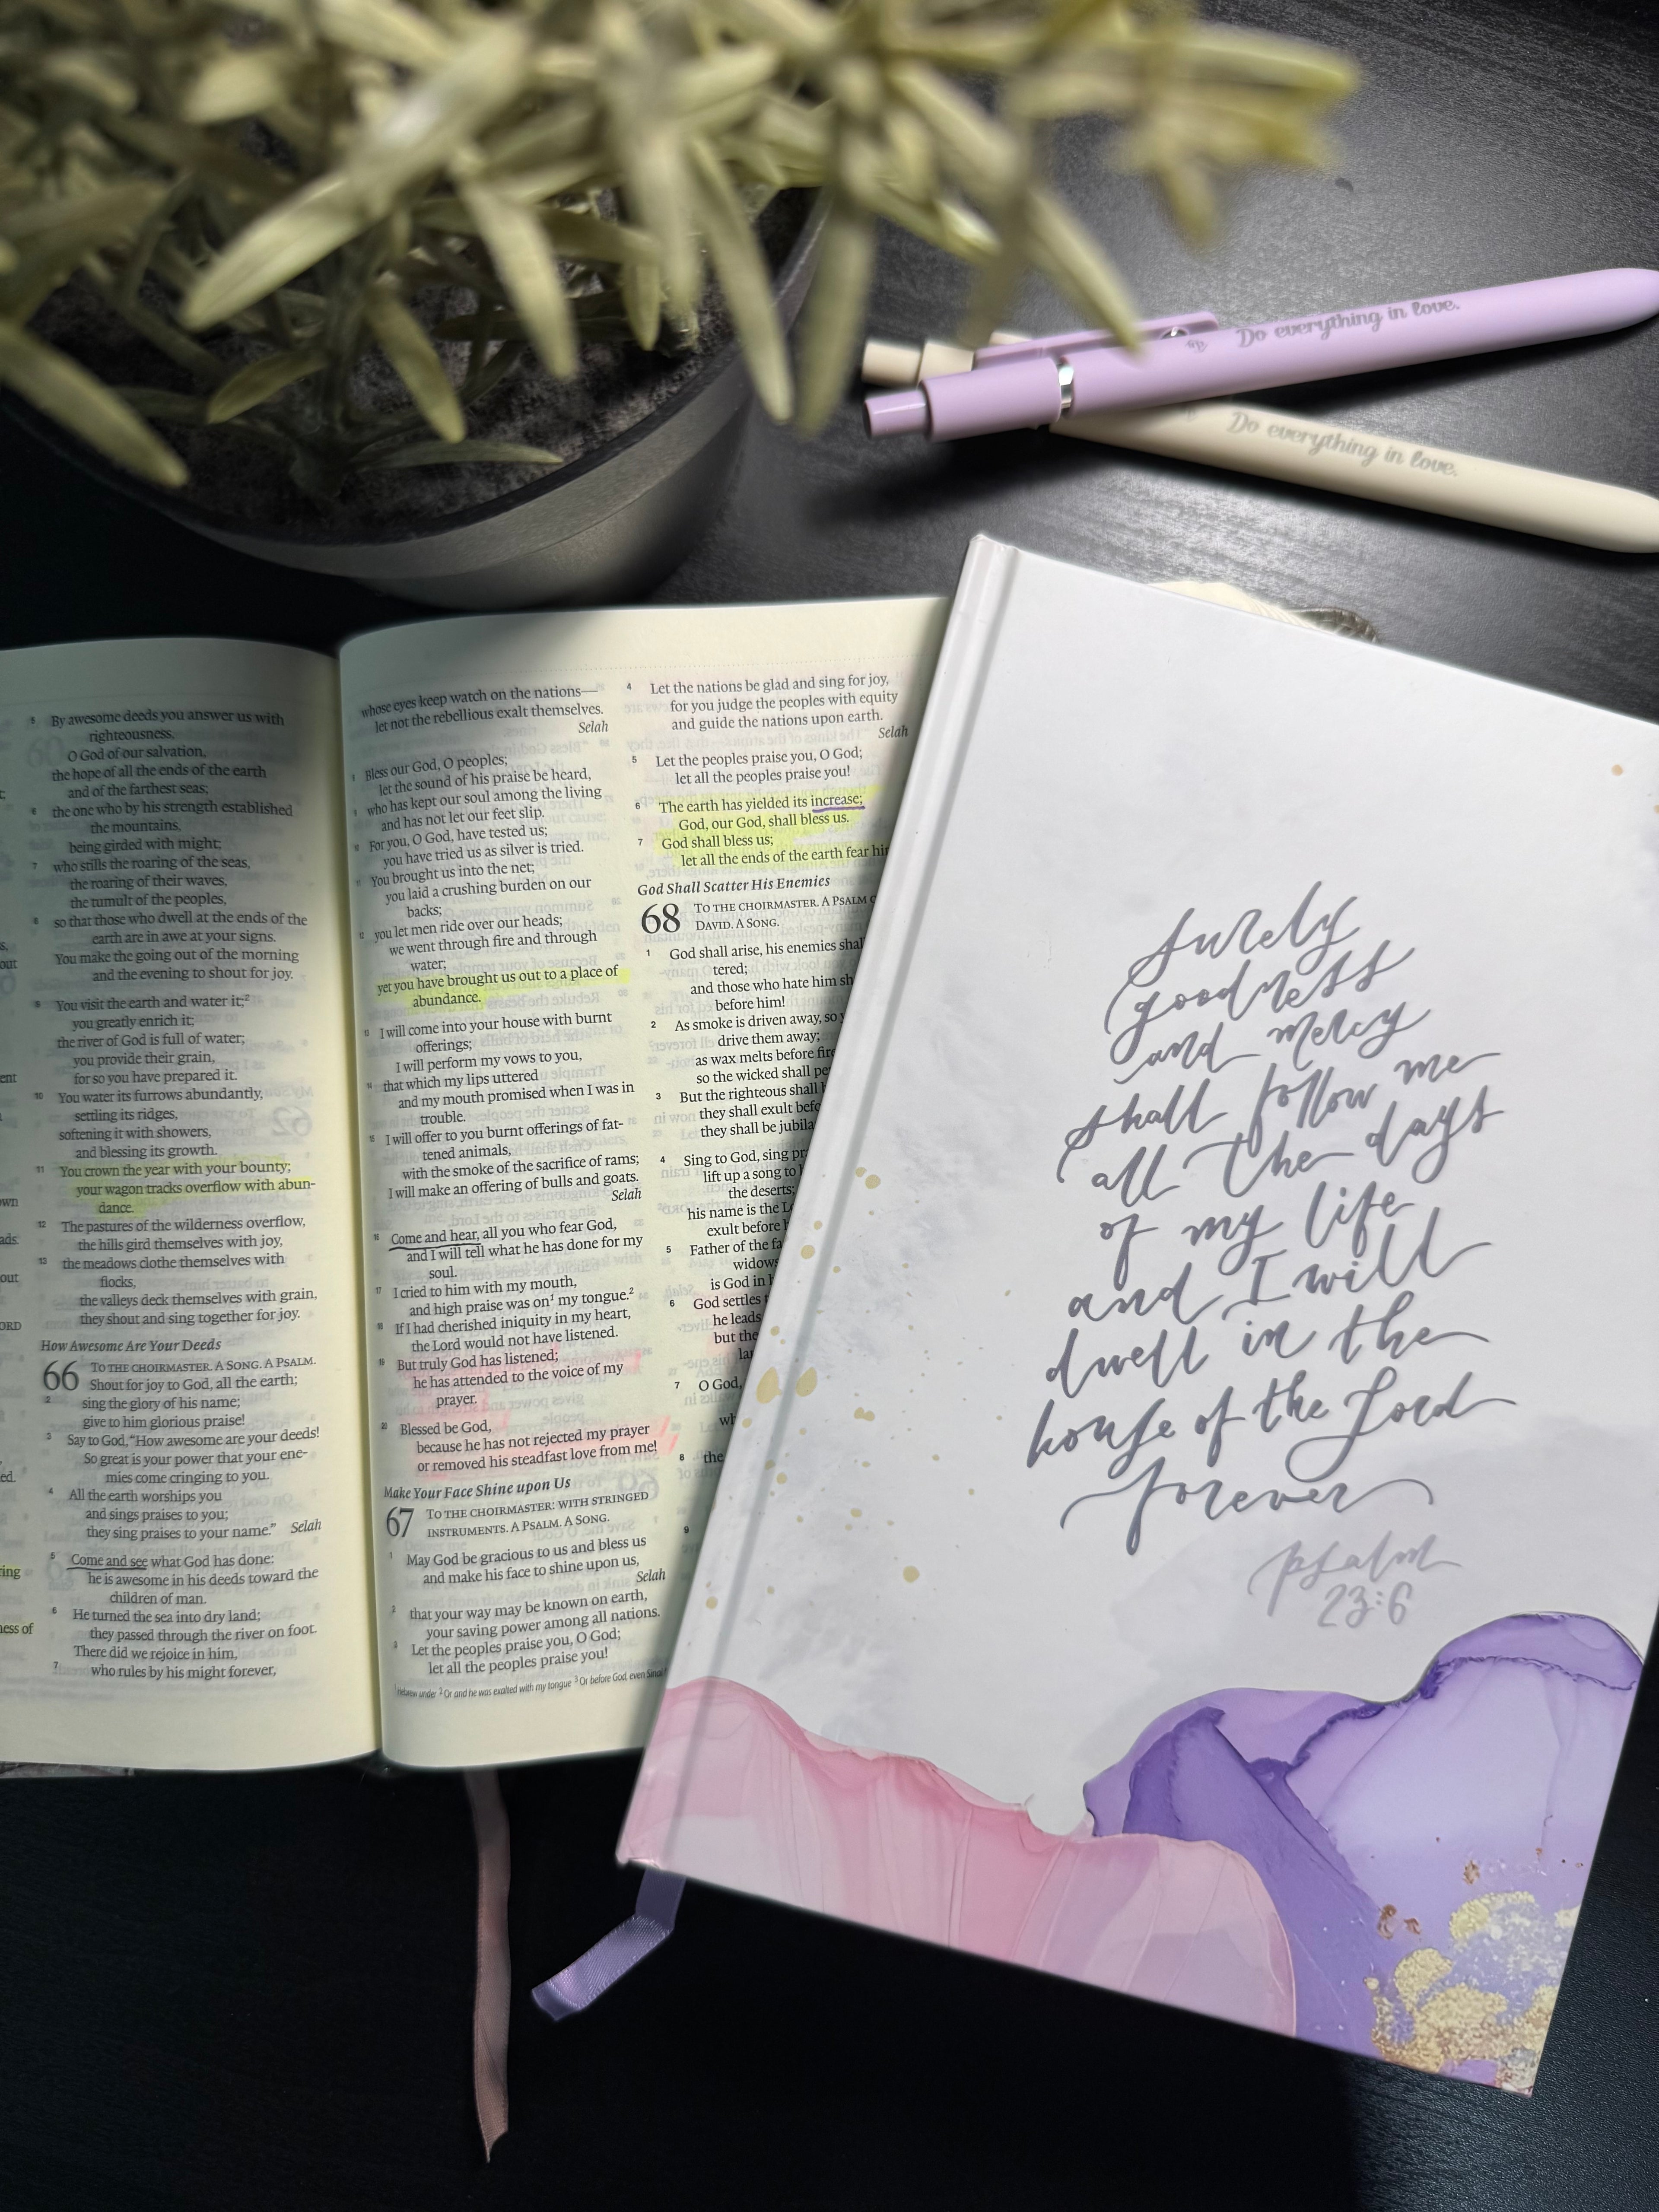 Do everything in love.
Do everything in love.
5 By awesome deeds you answer us with
righteousness,
O God of our salvation,
the hope of all the ends of the earth
and of the farthest seas;
6 the one who by his strength established
the mountains,
being girded with might;
7 who stills the roaring of the seas,
the roaring of their waves,
the tumult of the peoples,
8 so that those who dwell at the ends of the
earth are in awe at your signs.
You make the going out of the morning
and the evening to shout for joy.
9 You visit the earth and water it;2
you greatly enrich it;
the river of God is full of water;
you provide their grain,
for so you have prepared it.
10 You water its furrows abundantly,
settling its ridges,
softening it with showers,
and blessing its growth.
11 You crown the year with your bounty;
your wagon tracks overflow with abun-
dance.
12 The pastures of the wilderness overflow,
the hills gird themselves with joy,
13 the meadows clothe themselves with
flocks,
the valleys deck themselves with grain,
they shout and sing together for joy.
How Awesome Are Your Deeds
66 TO THE CHOIRMASTER. A SONG. A PSALM.
Shout for joy to God, all the earth;
2 sing the glory of his name;
give to him glorious praise!
3 Say to God, “How awesome are your deeds!
So great is your power that your ene-
mies come cringing to you.
4 All the earth worships you
and sings praises to you;
they sing praises to your name.” Selah
5 Come and see what God has done:
he is awesome in his deeds toward the
children of man.
6 He turned the sea into dry land;
they passed through the river on foot.
There did we rejoice in him,
7 who rules by his might forever,
whose eyes keep watch on the nations—
let not the rebellious exalt themselves.
Selah
8 Bless our God, O peoples;
let the sound of his praise be heard,
9 who has kept our soul among the living
and has not let our feet slip.
10 For you, O God, have tested us;
you have tried us as silver is tried.
11 You brought us into the net;
you laid a crushing burden on our
backs;
12 you let men ride over our heads;
we went through fire and through
water;
yet you have brought us out to a place of
abundance.
13 I will come into your house with burnt
offerings;
I will perform my vows to you,
14 that which my lips uttered
and my mouth promised when I was in
trouble.
15 I will offer to you burnt offerings of fat-
tened animals,
with the smoke of the sacrifice of rams;
I will make an offering of bulls and goats.
Selah
16 Come and hear, all you who fear God,
and I will tell what he has done for my
soul.
17 I cried to him with my mouth,
and high praise was on1 my tongue.2
18 If I had cherished iniquity in my heart,
the Lord would not have listened.
19 But truly God has listened;
he has attended to the voice of my
prayer.
20 Blessed be God,
because he has not rejected my prayer
or removed his steadfast love from me!
Make Your Face Shine upon Us
67 TO THE CHOIRMASTER: WITH STRINGED
INSTRUMENTS. A PSALM. A SONG.
1 May God be gracious to us and bless us
and make his face to shine upon us,
Selah
2 that your way may be known on earth,
your saving power among all nations.
3 Let the peoples praise you, O God;
let all the peoples praise you!
1 Hebrew under 2 Or and he was exalted with my tongue 3 Or before God, even Sinai
4 Let the nations be glad and sing for joy,
for you judge the peoples with equity
and guide the nations upon earth.
Selah
5 Let the peoples praise you, O God;
let all the peoples praise you!
6 The earth has yielded its increase;
God, our God, shall bless us.
7 God shall bless us;
let all the ends of the earth fear
God Shall Scatter His Enemies
68 TO THE CHOIRMASTER. A PSALM
DAVID. A SONG.
1 God shall arise, his enemies
tered;
and those who hate him
before him!
2 As smoke is driven away, so
drive them away;
as wax melts before
so the wicked shall
3 But the righteous shall
they shall exult
they shall be
4 Sing to God, sing
lift up a song to
the deserts;
his name is the
exult before
5 Father of the
widows
is God in
6 God settles
he leads
but the
7 O God,
8 the
9
surely
goodness
and mercy
shall follow me
all the days
of my life
and I will
dwell in the
house of the Lord
forever
psalm
23:6